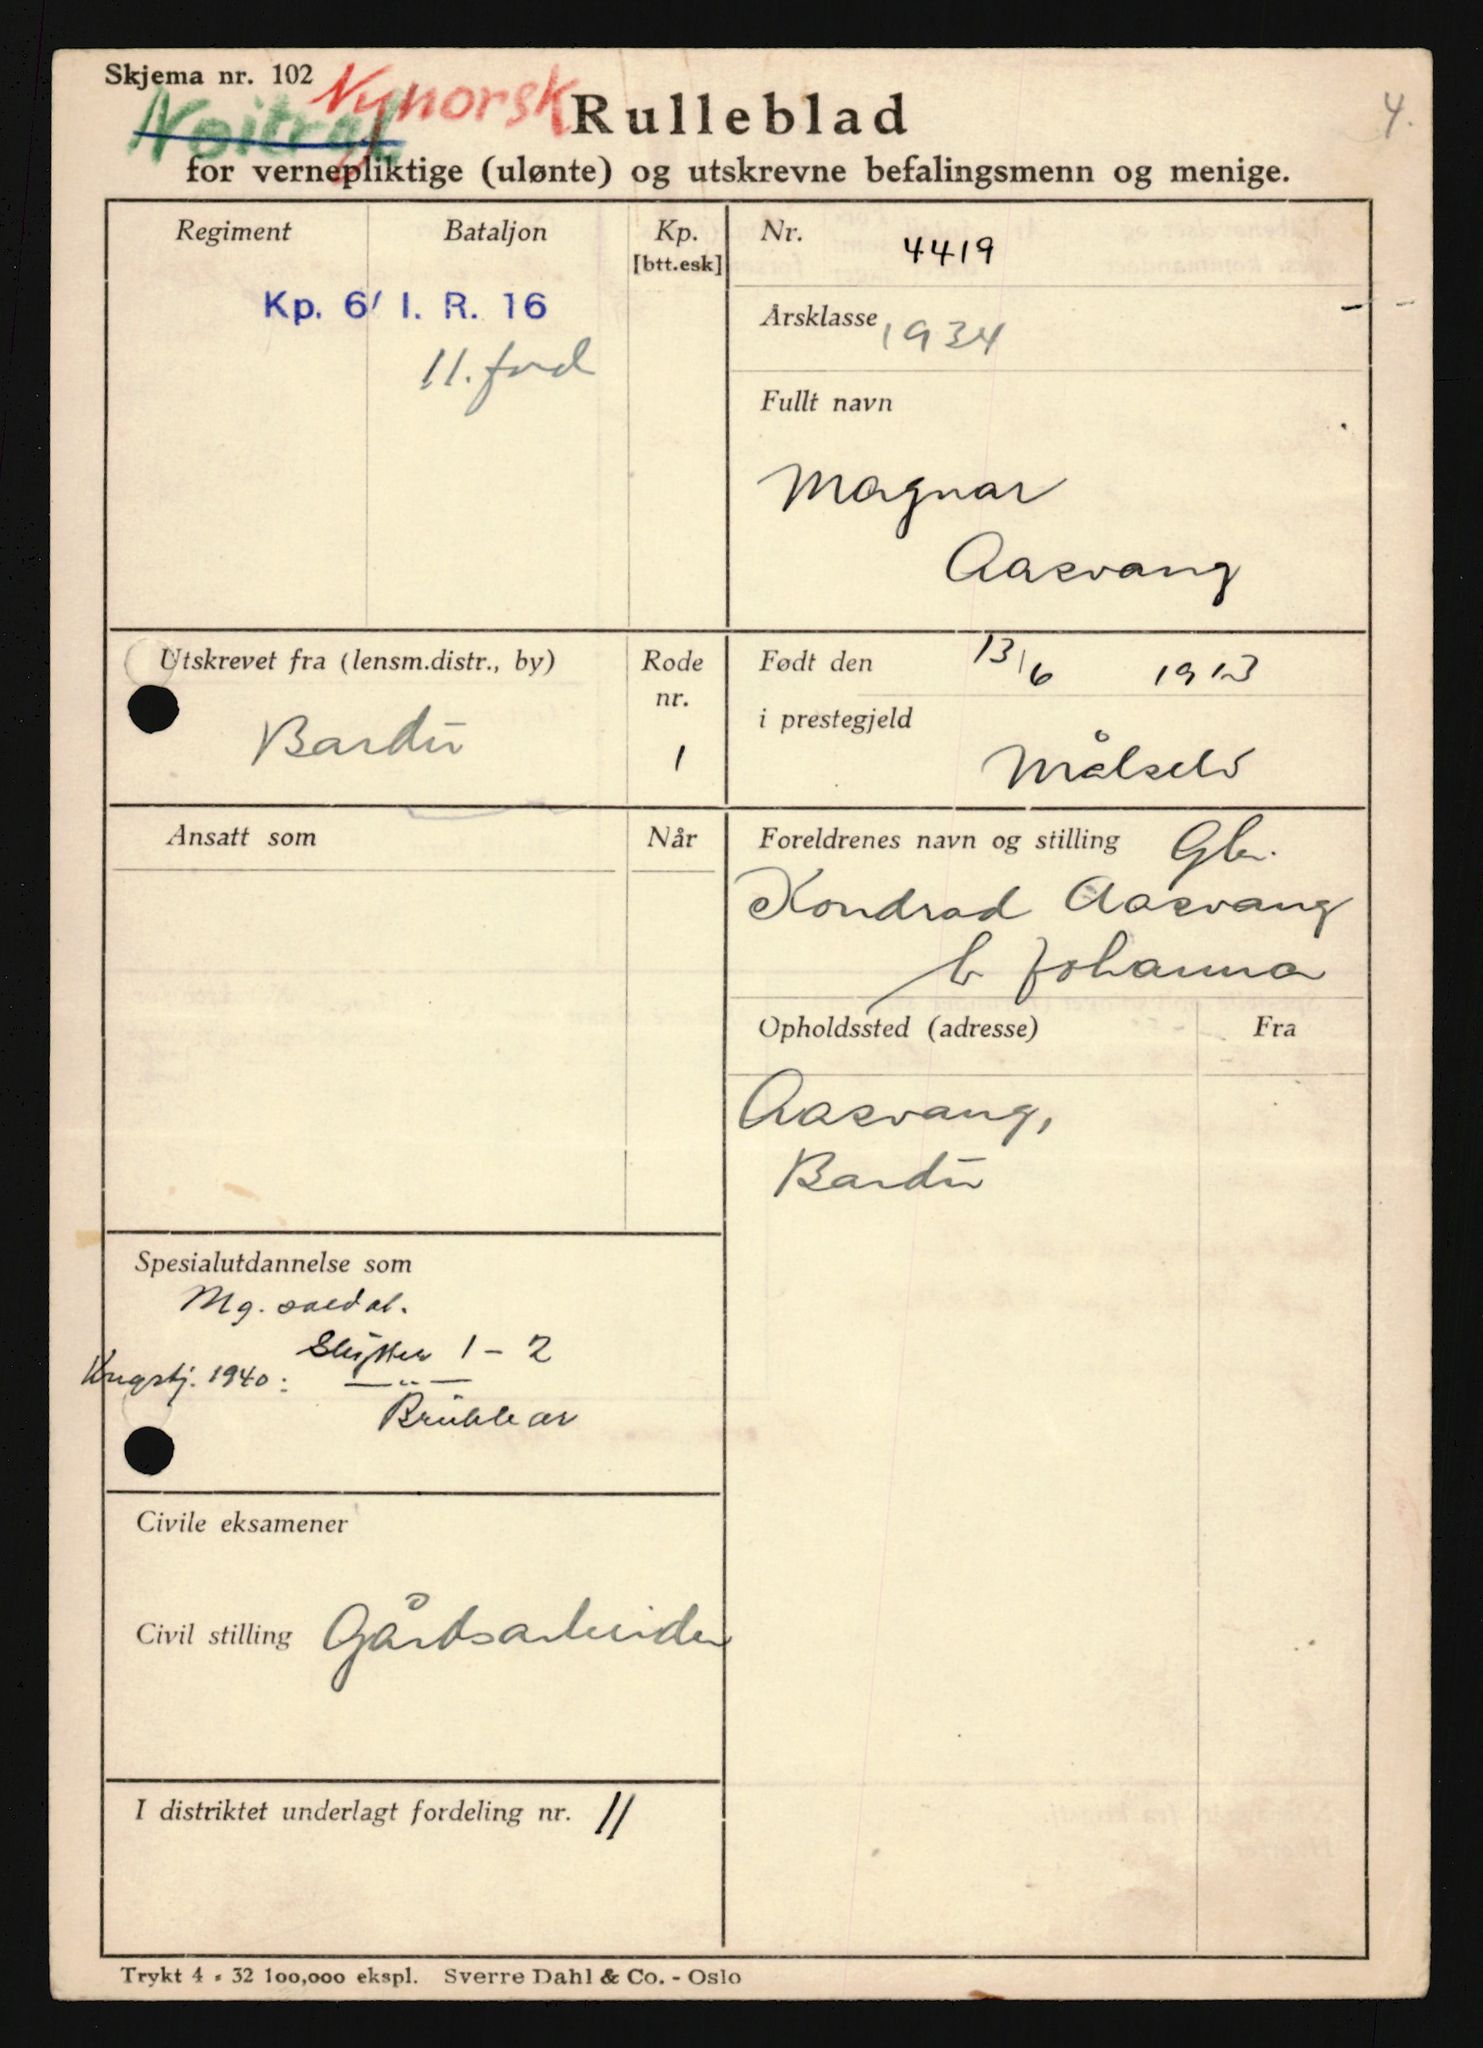 Skjema nr. 102
Nynorsk
Nøitral
Rulleblad
4.
for vernepliktige (ulønte) og utskrevne befalingsmenn og menige.
Regiment Bataljon Kp. [btt.esk]
Kp. 6/ I. R. 16
11. ford
Nr. 4419
Årsklasse 1934
Fullt navn
Magnar
Aasvang
Utskrevet fra (lensm.distr., by)
Bardu
Rode nr.
1
Født den 13/6 1913
i prestegjeld
Målselv
Ansatt som Når
Foreldrenes navn og stilling Gbr.
Kondrad Aasvang
Johanna
Opholdssted (adresse) Fra
Aasvang,
Bardu
Spesialutdannelse som
Mg. soldat.
Skytter 1 - 2
Krigstj. 1940: — " —
Civile eksamener
Civil stilling Gårdsarbeider
I distriktet underlagt fordeling nr. 11
Trykt 4 - 32 100,000 ekspl. Sverre Dahl & Co. - Oslo